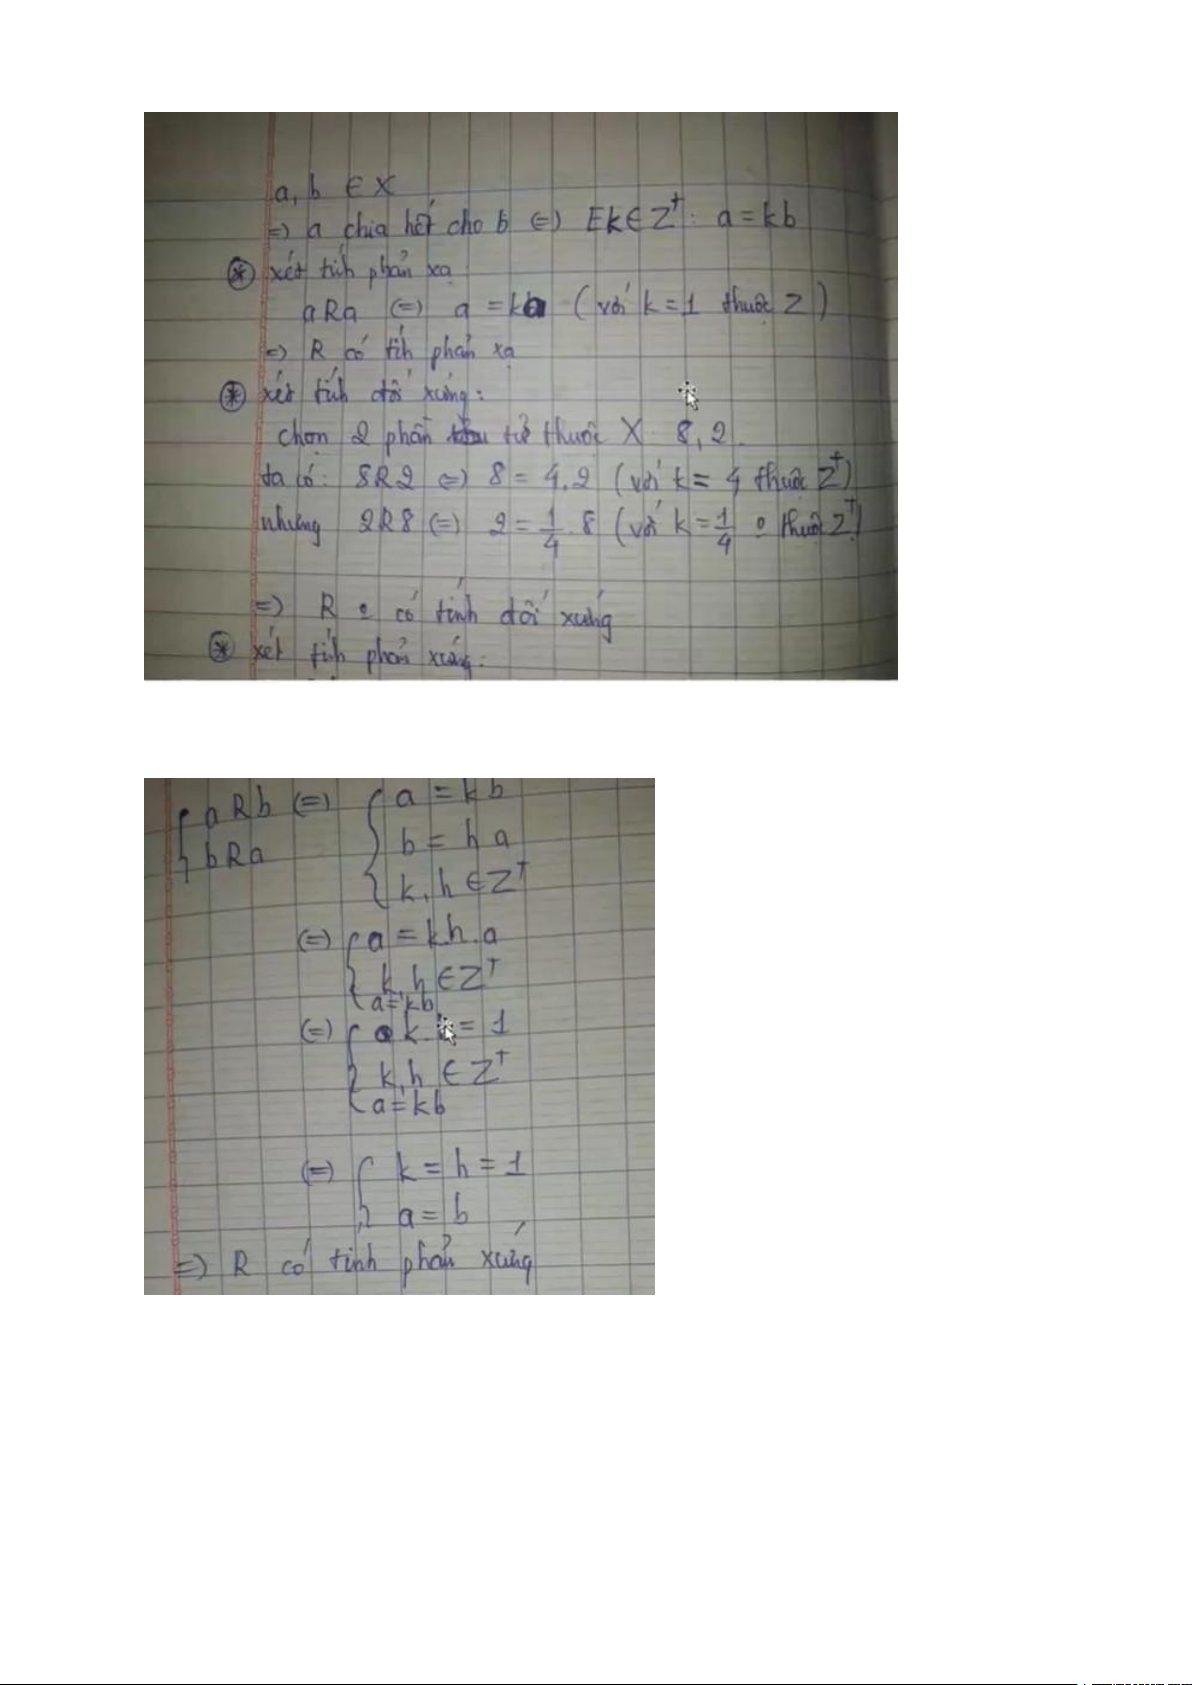 a, b ∈ X
=> a chia hết cho b (=) Ek ∈ Z⁺: a = kb
⊛ xét tính phản xạ :
aRa (=) a = ka (với k = 1 thuộc Z)
=> R có tính phản xạ
⊛ xét tính đối xứng :
chọn 2 phần tử thuộc X 8, 2.
ta có: 8R2 (=) 8 = 4.2 (với k = 4 thuộc Z⁺)
nhưng 2R8 (=) 2 = 1/4 . 8 (với k = 1/4 o thuộc Z⁺)
=> R o có tính đối xứng
⊛ xét tính phản xứng :
{ aRb (=) { a = kb
{ bRa { b = h a
{ k, h ∈ Z⁺
(=) { a = k.h.a
{ k, h ∈ Z⁺
{ a = kb
(=) { k. = 1
{ k, h ∈ Z⁺
{ a = kb
(=) { k = h = 1
{ a = b
=> R có tính phản xứng